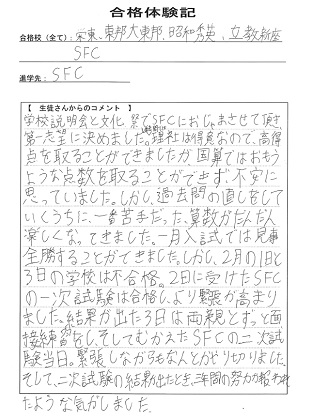 合格体験記
合格校(全て): 栄東、東邦大東邦、昭和秀英、立教新座
SFC
進学先: SFC
【 生徒さんからのコメント 】
学校説明会と文化祭でSFCにおじゃまさせて頂き、
第一志望に決めました。理社は得意なので、高得
点を取ることができましたが、国算ではおもう
ような点数を取ることができず、不安に
思っていました。しかし、過去問の直しをして
いくうちに、一番苦手だった算数がだんだん
楽しくなってきました。一月入試では見事
全勝することができました。しかし、2月の1日と
3日の学校は不合格。2日に受けたSFC
の一次試験は合格し、より緊張が高まり
ました。結果が出た3日は両親とずっと面
接練習をし、そしてむかえたSFCの二次試
験当日。緊張しながらもなんとかやり切りました。
そして、二次試験の結果が出たとき、三年間の努力が報われ
たような気がしました。